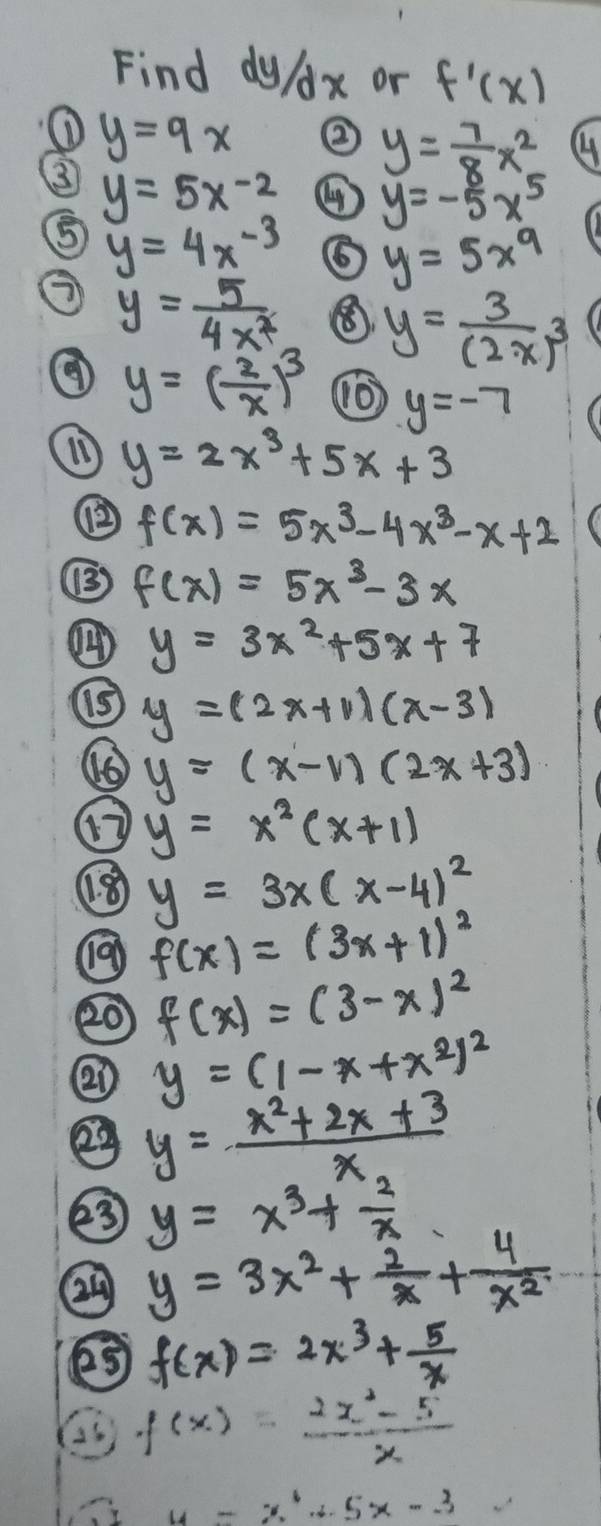 Find dy/dx or f'(x)
① y = 9x ② y = 7/8 x² ④
③ y = 5x⁻² ④ y = -5x⁵
⑤ y = 4x⁻³ ⑥ y = 5x⁹
⑦ y = 5/4x² ⑧ y = 3/(2x)³
⑨ y = (2/x)³ ⑩ y = -7
⑪ y = 2x³ + 5x + 3
⑫ f(x) = 5x³ - 4x³ - x + 2
⑬ f(x) = 5x³ - 3x
⑭ y = 3x² + 5x + 7
⑮ y = (2x+1)(x-3)
⑯ y = (x-1)(2x+3)
⑰ y = x²(x+1)
⑱ y = 3x(x-4)²
⑲ f(x) = (3x+1)²
⑳ f(x) = (3-x)²
㉑ y = (1-x+x²)²
㉒ y = x²+2x+3/x
㉓ y = x³ + 2/x
㉔ y = 3x² + 2/x + 4/x²
㉕ f(x) = 2x³ + 5/x
㉖ f(x) = 2x²-5/x
y = + 5x - 3